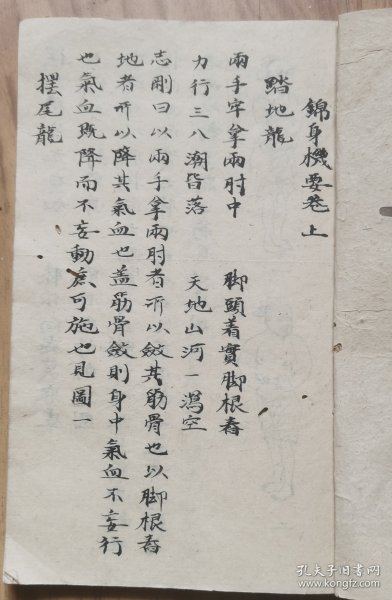 錦身機要卷上
踏地龍
兩手牢拿兩肘中 脚頭着實脚根舂
力行三八潮皆落 天地山河一瀉空
志剛曰以兩手拿兩肘者所以斂其筋骨也以脚根舂
地者所以降其氣血也盖筋骨斂則身中氣血不妄行
也氣血既降而不妄動庶可施也見圖一
擺尾龍
孔夫子旧书网